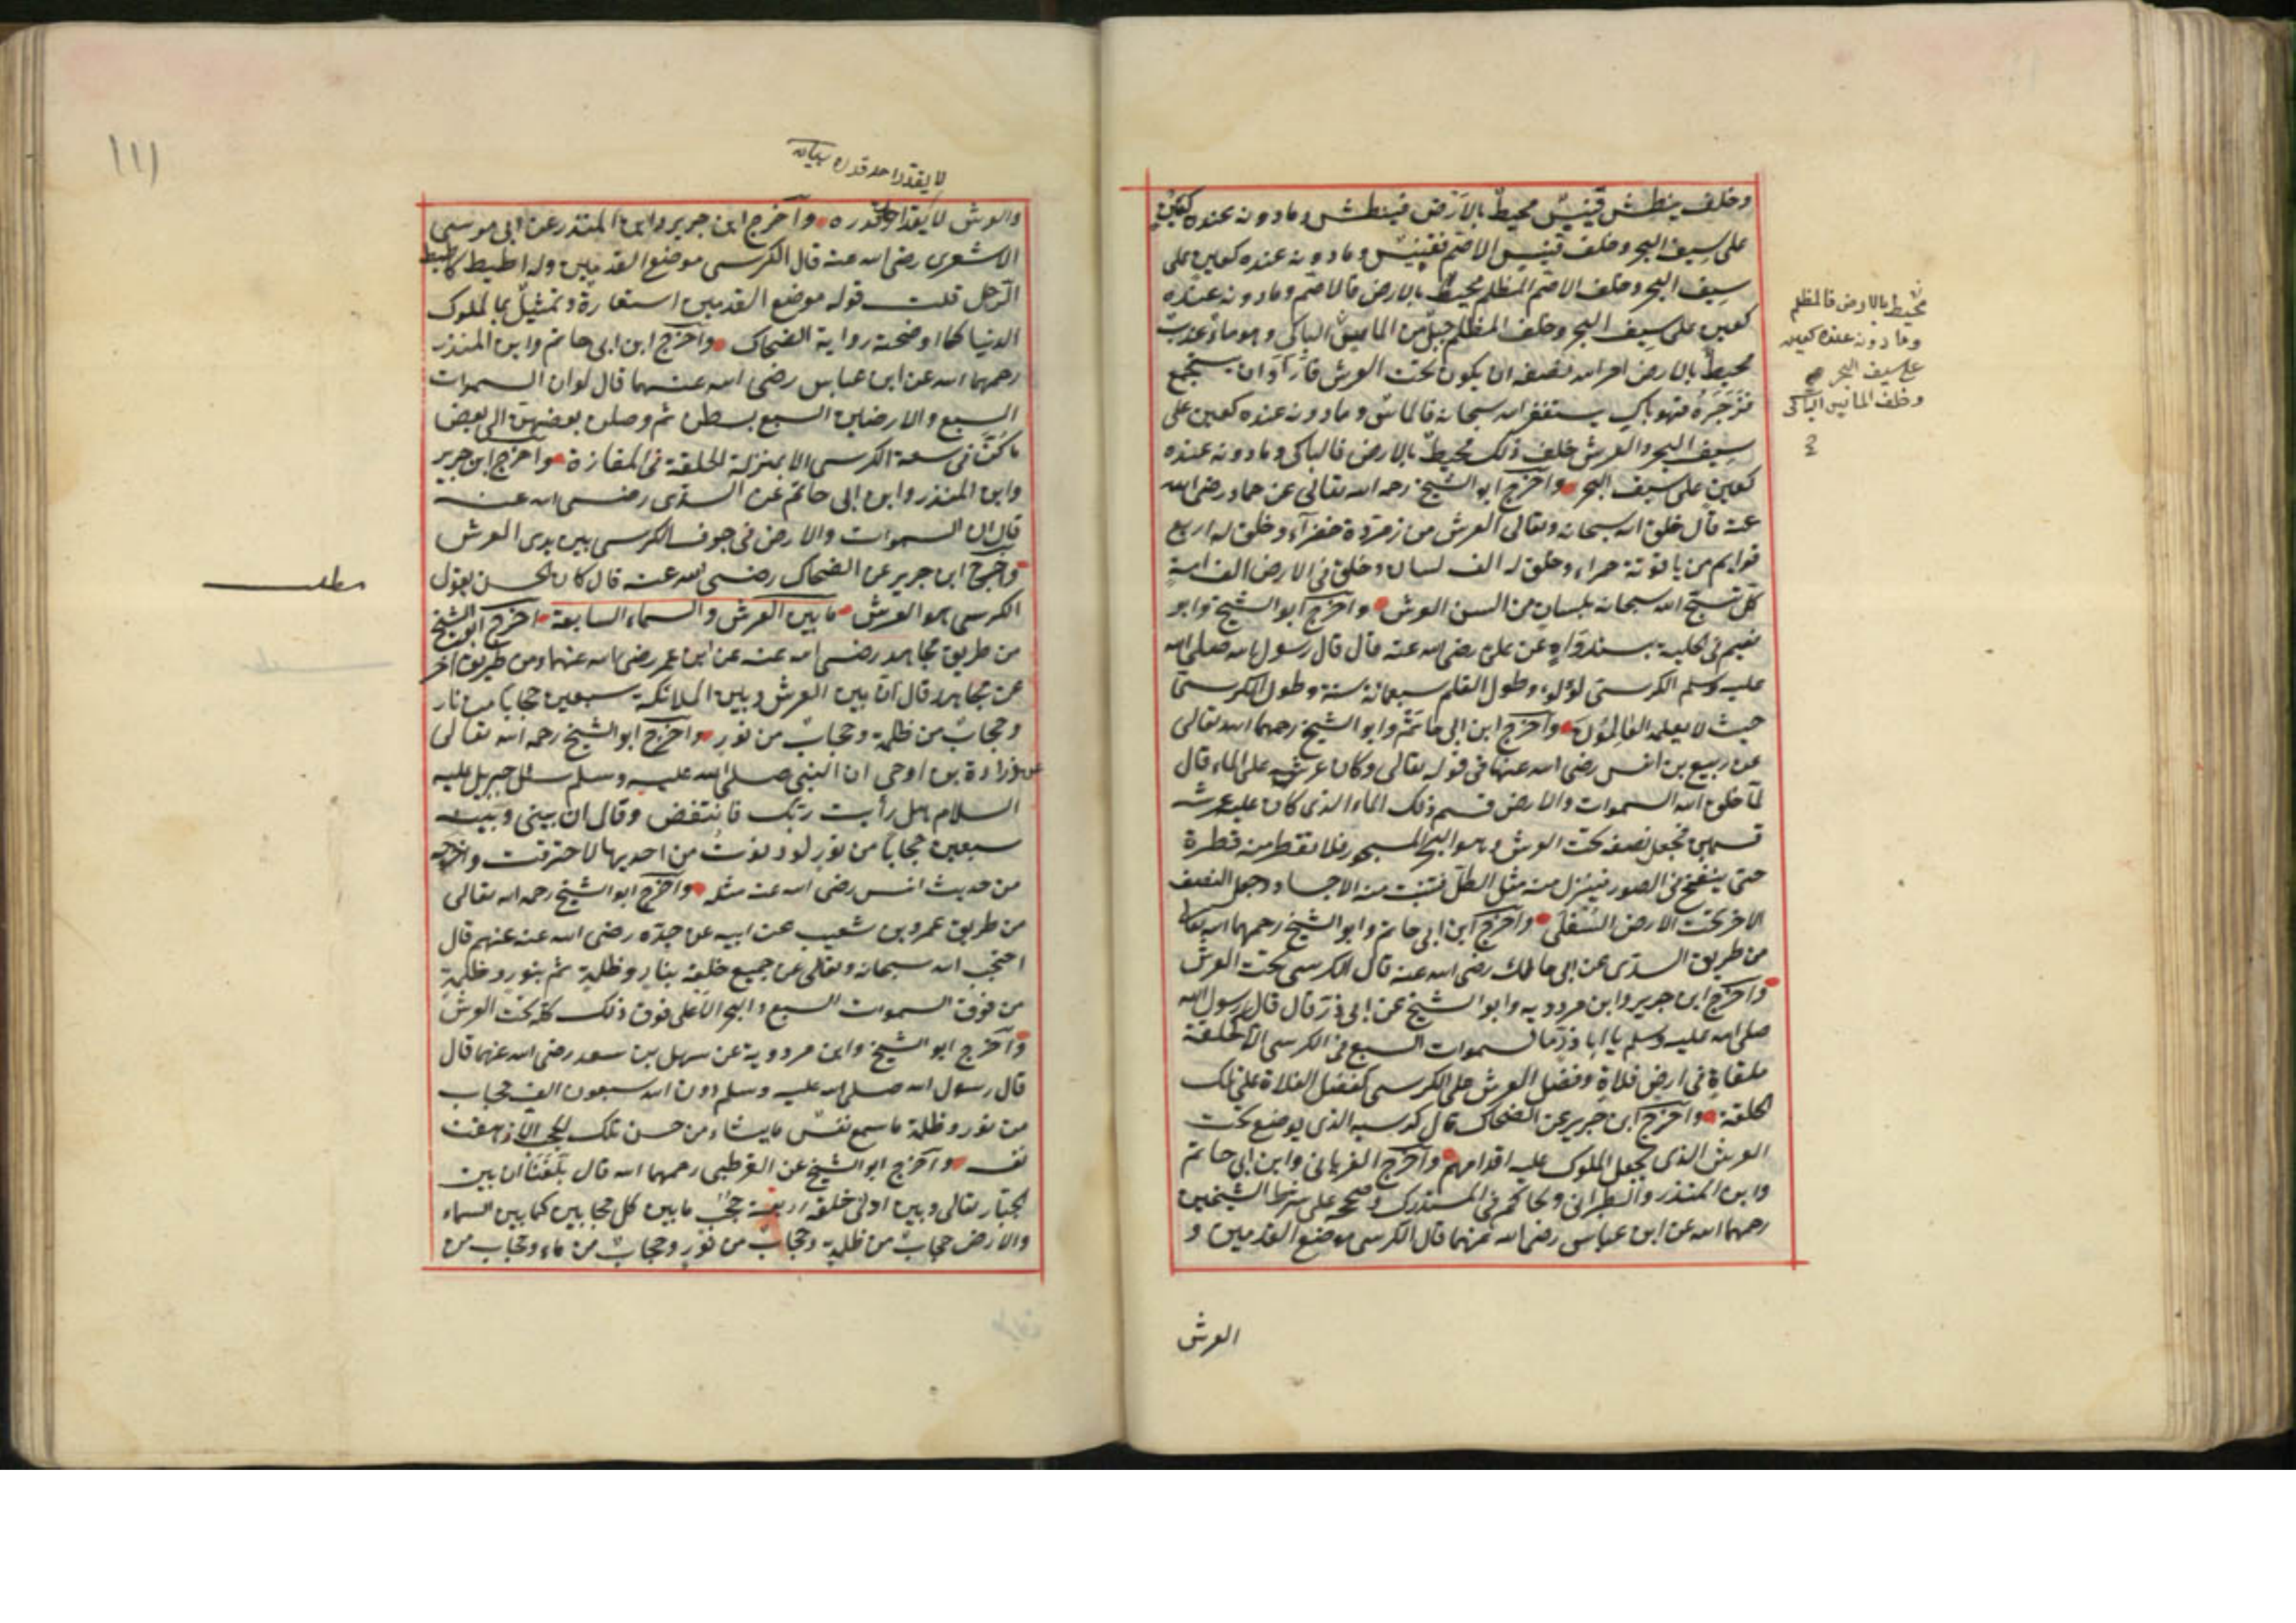 وخلف ينطش قينيس محيط بالارض فينطش وما دونه عنده كعين
على سيف البحر وخلف قينيس الاصم فقينيس وما دونه عنده كعين على
سيف البحر وخلف الاصم المظلم محيط بالارض فالاصم وما دونه عنده
كعين على سيف البحر وخلف المظلم جبل من الماس الباكى وهو ماء عذب
محيط بالارض امر الله نصفه ان يكون تحت العرش فاراد ان يستجمع
فزجره فهو باك يستغفر الله سبحانه فالماس وما دونه عنده كعين على
سيف البحر والعرش خلف ذلك محيط بالارض فالباكى وما دونه عنده
كعين على سيف البحر واخرج ابو الشيخ رحمه الله تعالى عن حماد رضى الله
عنه قال خلق الله سبحانه وتعالى العرش من زمردة خضراء وخلق له اربع
قوايم من ياقوتة حمراء وخلق له الف لسان وخلق فى الارض الف امة
كل تسبح الله سبحانه بلسان من السن العرش واخرج ابو الشيخ وابو
نعيم فى الحلية بسند واه عن على رضى الله عنه قال قال رسول الله صلى الله
عليه وسلم الكرسى لؤلؤ وطول القلم سبعمائة سنة وطول الكرسى
حيث لا يعلمه العالمون واخرج ابن ابى حاتم وابو الشيخ رحمهما الله تعالى
عن ربيع بن انس رضى الله عنهما فى قوله تعالى وكان عرشه على الماء قال
لما خلق الله السموات والارض قسم ذلك الماء الذى كان عليه عرشه
قسمين فجعل نصفه تحت العرش وهو البحر المسجور فلا تقطر منه قطرة
حتى ينفخ فى الصور فينزل منه مثل الطل فتنبت منه الاجساد وجعل النصف
الاخر تحت الارض السفلى واخرج ابن ابى حاتم وابو الشيخ رحمهما الله تعالى
من طريق السدى عن ابى مالك رضى الله عنه قال الكرسى تحت العرش
واخرج ابن جرير وابن مردويه وابو الشيخ عن ابى ذر قال قال رسول الله
صلى الله عليه وسلم يا ابا ذر ما السموات السبع فى الكرسى الا كحلقة
ملقاة فى ارض فلاة وفضل العرش على الكرسى كفضل الفلاة على تلك
الحلقة واخرج ابن جرير عن الضحاك قال كرسيه الذى يوضع تحت
العرش الذى يجعل الملوك عليه اقدامهم واخرج الفريابى وابن ابى حاتم
وابن المنذر والطبرانى والحاكم فى المستدرك وصححه على شرط الشيخين
رحمهما الله عن ابن عباس رضى الله عنهما قال الكرسى موضع القدمين و
العرش
محيط بالارض فالمظلم
وما دونه عنده كعين
على سيف البحر صح
وخلف الماس الباكى
١١١
لا يقدر احد قدره
والعرش لا يقدر احد قدره واخرج ابن جرير وابن المنذر عن ابى موسى
الاشعرى رضى الله عنه قال الكرسى موضع القدمين وله اطيط كاطيط
الرحل قلت قوله موضع القدمين استعارة وتمثيل بما لملوك
الدنيا كما اوضحته رواية الضحاك واخرج ابن ابى حاتم وابن المنذر
رحمهما الله عن ابن عباس رضى الله عنهما قال لو ان السموات
السبع والارضين السبع بسطن ثم وصلن بعضهن الى بعض
ما كن فى سعة الكرسى الا بمنزلة الحلقة فى المفازة واخرج ابن جرير
وابن المنذر وابن ابى حاتم عن السدى رضى الله عنه
قال ان السموات والارض فى جوف الكرسى بين يدى العرش
واخرج ابن جرير عن الضحاك رضى الله عنه قال كان الحسن يقول
الكرسى هو العرش ما بين العرش والسماء السابعة اخرج ابو الشيخ
من طريق مجاهد رضى الله عنه عن ابن عمر رضى الله عنهما ومن طريق اخر
عن مجاهد قال ان بين العرش وبين الملائكة سبعين حجابا من نار
وحجاب من ظلمة وحجاب من نور واخرج ابو الشيخ رحمه الله تعالى
عن زرارة بن اوحى ان النبى صلى الله عليه وسلم سئل جبريل عليه
السلام هل رأيت ربك فانتفض وقال ان بينى وبينه
سبعين حجابا من نور لو دنوت من احديها لاحترقت واخرجه
من حديث انس رضى الله عنه مثله واخرج ابو الشيخ رحمه الله تعالى
من طريق عمرو بن شعيب عن ابيه عن جده رضى الله عنه عنهم قال
احتجب الله سبحانه وتعالى عن جميع خلقه بنار وظلمة ثم بنور وظلمة
من فوق السموات السبع والبحر الاعلى فوق ذلك كله تحت العرش
واخرج ابو الشيخ وابن مردوية عن سهل بن سعد رضى الله عنهما قال
قال رسول الله صلى الله عليه وسلم دون الله سبعون الف حجاب
من نور وظلمة ما سمع نفس ما يشاء من حسن تلك الحجب الا زهقت
نفسه واخرج ابو الشيخ عن القرطبى رحمهما الله قال بلغنا ان بين
الجبار تعالى وبين ادنى خلقه اربعة حجب ما بين كل حجابين كما بين السماء
والارض حجاب من ظلمة وحجاب من نور وحجاب من ماء وحجاب من
مطلب